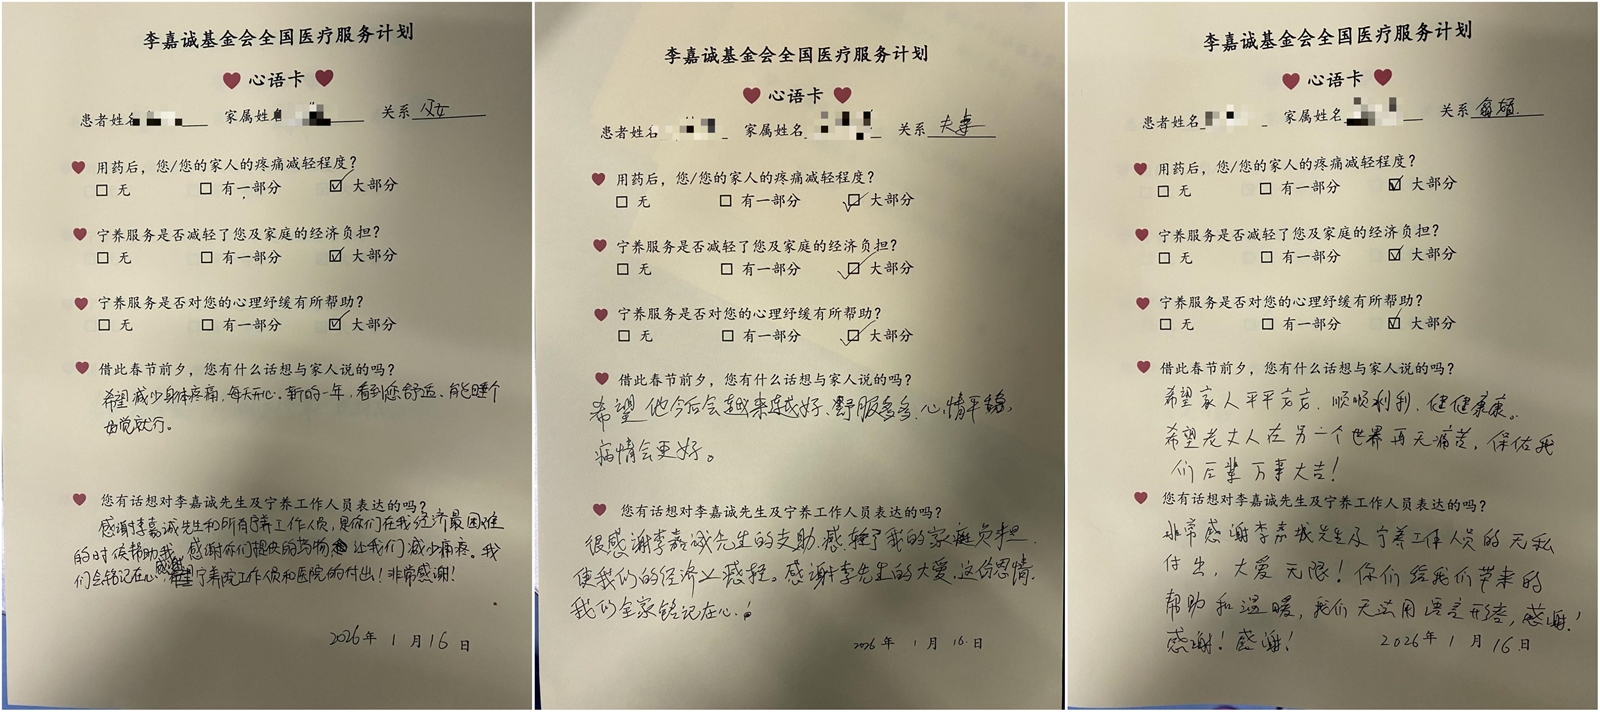 李嘉诚基金会全国医疗服务计划
心语卡
患者姓名 家属姓名 关系 父女
用药后，您/您的家人的疼痛减轻程度？
无 有一部分 大部分
宁养服务是否减轻了您及家庭的经济负担？
无 有一部分 大部分
宁养服务是否对您的心理纾缓有所帮助？
无 有一部分 大部分
借此春节前夕，您有什么话想与家人说的吗？
希望减少身体疼痛，每天开心。新的一年，看到您舒适、能睡个
好觉就行。
您有话想对李嘉诚先生及宁养工作人员表达的吗？
感谢李嘉诚先生和所有宁养工作人员，是你们在我经济最困难
的时候帮助我，感谢你们提供的药物 让我们减少痛疼。我
们会铭记在心，感谢宁养院工作人员和医院的付出！非常感谢！
2026年 1月16日
李嘉诚基金会全国医疗服务计划
心语卡
患者姓名 家属姓名 关系 夫妻
用药后，您/您的家人的疼痛减轻程度？
无 有一部分 大部分
宁养服务是否减轻了您及家庭的经济负担？
无 有一部分 大部分
宁养服务是否对您的心理纾缓有所帮助？
无 有一部分 大部分
借此春节前夕，您有什么话想与家人说的吗？
希望他今后会越来越好、舒服多多、心情平稳，
病情会更好。
您有话想对李嘉诚先生及宁养工作人员表达的吗？
很感谢李嘉诚先生的支助，减轻了我的家庭负担.
使我们的经济上减轻。感谢李先生的大爱，这份恩情，
我们全家铭记在心.
2026年 1月16日
李嘉诚基金会全国医疗服务计划
心语卡
患者姓名 家属姓名 关系 翁婿
用药后，您/您的家人的疼痛减轻程度？
无 有一部分 大部分
宁养服务是否减轻了您及家庭的经济负担？
无 有一部分 大部分
宁养服务是否对您的心理纾缓有所帮助？
无 有一部分 大部分
借此春节前夕，您有什么话想与家人说的吗？
希望家人平平安安、顺顺利利、健健康康。
希望老丈人在另一个世界再无痛苦，保佑我
们后辈万事大吉！
您有话想对李嘉诚先生及宁养工作人员表达的吗？
非常感谢李嘉诚先生及宁养工作人员的无私
付出，大爱无限！你们给我们带来的
帮助和温暖，我们无法用语言形容，感谢！
感谢！感谢！
2026年 1月16日